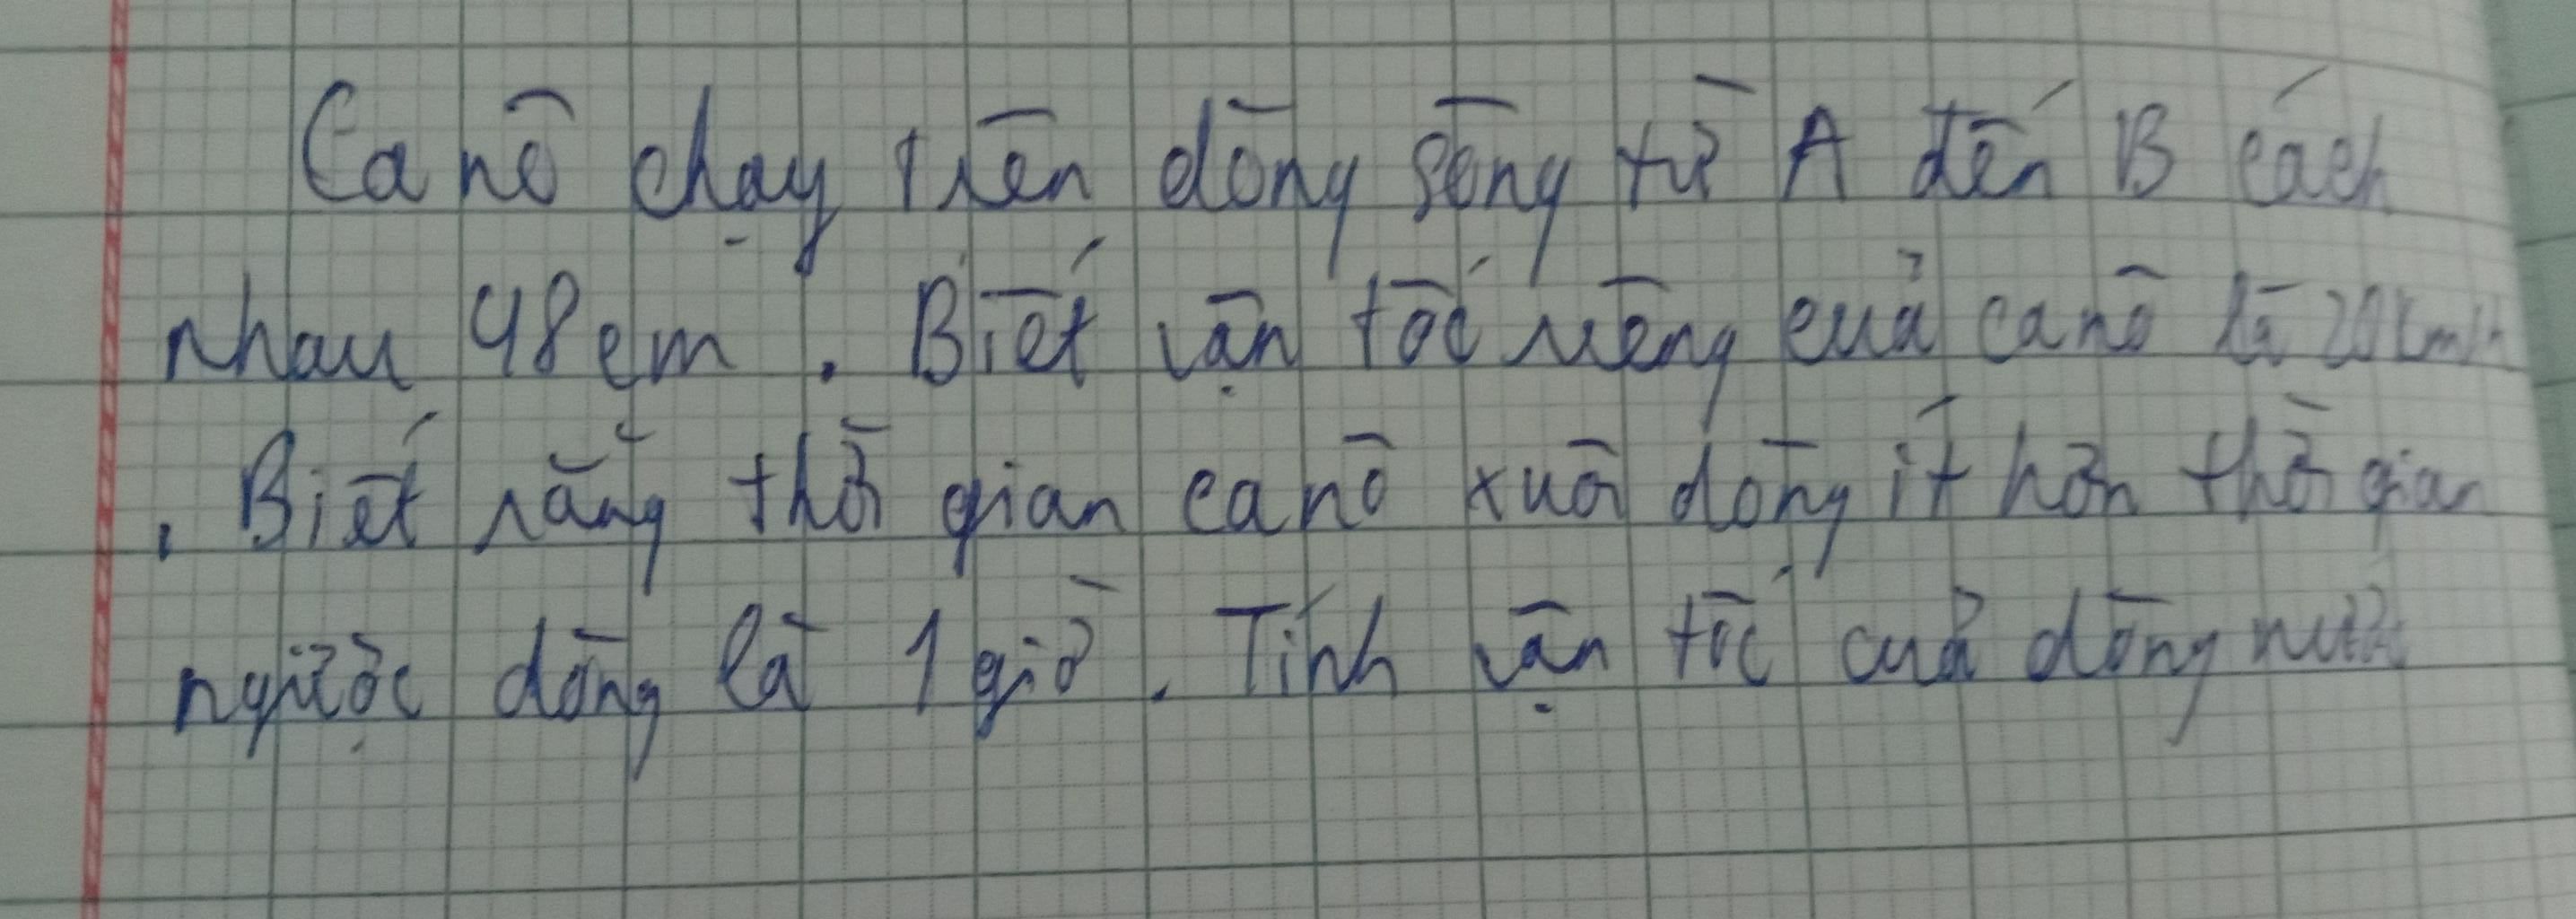 Ca nô chạy trên dòng sông từ A đến B cách
nhau 48 cm. Biết vận tốc riêng của ca nô là 20 km/h
. Biết rằng thời gian ca nô xuôi dòng ít hơn thời gian
ngược dòng là 1 giờ. Tính vận tốc của dòng nước